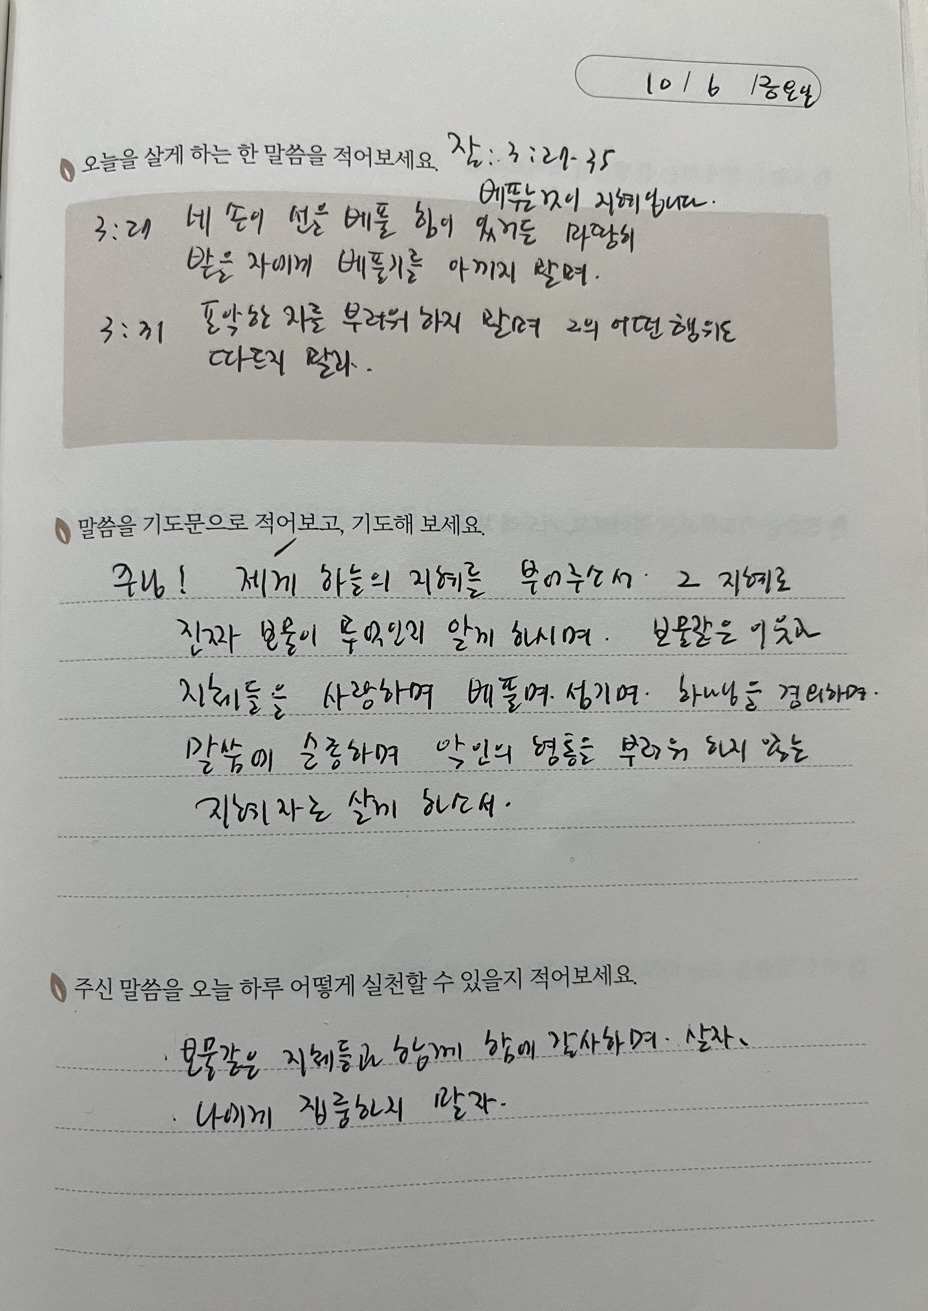 10 / 6 / 금요일
오늘을 살게 하는 한 말씀을 적어보세요. 잠: 3:27-35
베푸는것이 지혜입니다.
3:27 네 손이 선을 베풀 힘이 있거든 마땅히
받을 자에게 베풀기를 아끼지 말며.
3:31 포악한 자를 부러워 하지 말며 그의 어떤 행위도
따르지 말라.
말씀을 기도문으로 적어보고, 기도해 보세요.
주님! 제게 하늘의 지혜를 부어주소서. 그 지혜로
진짜 보물이 무엇인지 알게 하시며. 보물같은 이웃과
지체들을 사랑하며 베풀며. 섬기며. 하나님을 경외하며.
말씀에 순종하며 악인의 형통을 부러워 하지 않는
지혜자로 살게 하소서.
주신 말씀을 오늘 하루 어떻게 실천할 수 있을지 적어보세요.
· 보물같은 지체들과 함께 함에 감사하며. 살자.
· 나에게 집중하지 말자.